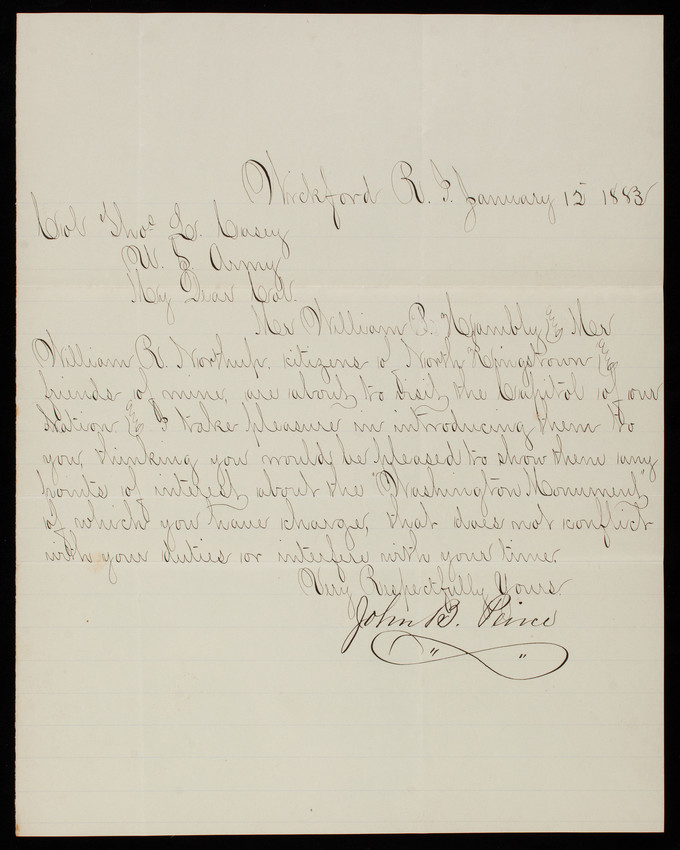 Wickford R. I. January 15 1883
Col Thos L. Casey
U. S. Army
My Dear Col.
Mr William P. Hambly & Mr
William R. Northup, citizens of North Kingstown &
friends of mine, are about to visit the Capitol of our
Nation & I take pleasure in introducing them to
you, thinking you would be pleased to show them any
points of interest about the "Washington Monument"
of which you have charge, that does not conflict
with your duties or interfere with your time.
Very Respectfully Yours
John B. Peirce